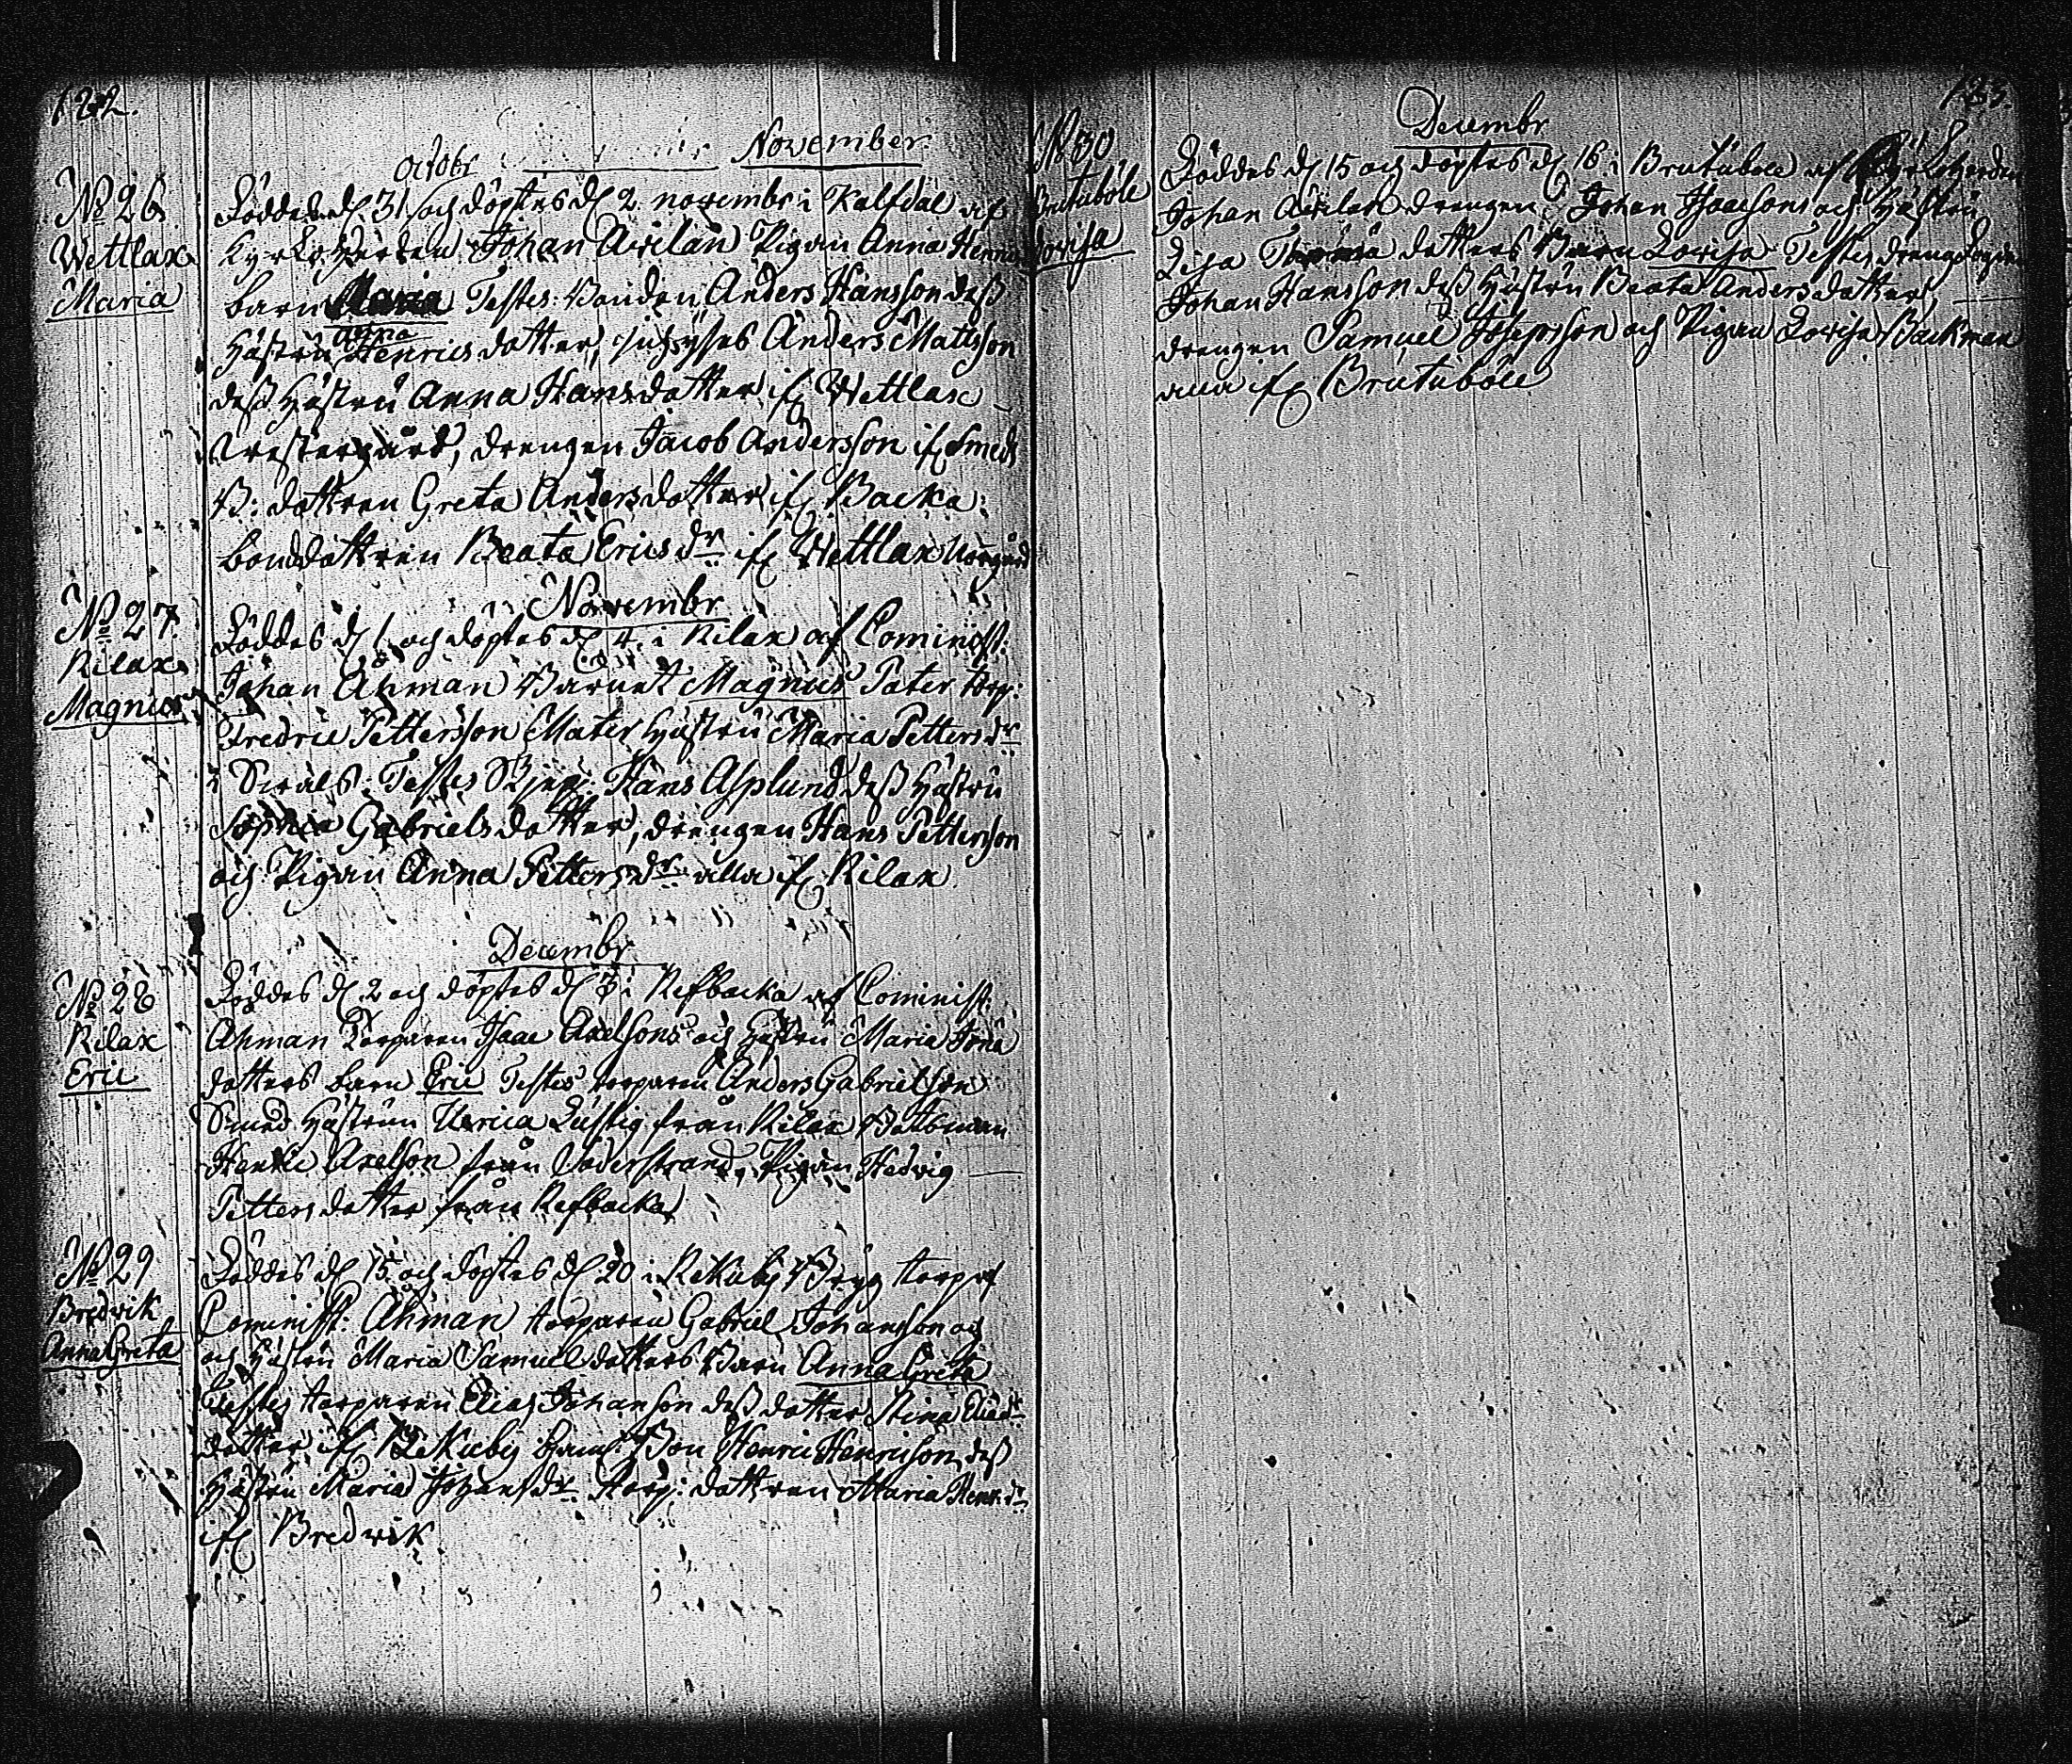 122.
November
octobr
No 26
Wettlax
Maria
Föddes d 31 och döptes d 2 novembr i Kalfdal af
Kyrkoherden Johan Avelan Pigan Anna Henric
barn Maria Testes: Bonden Anders Hansson deß
Hustru Anna Henricsdotter, Anders Mattsson
deß Hustru Anna Hansdotter if Wettlax
westergård, drengen Jacob Andersson if Smeds
B: dottren Greta Andersdotter if Backa:
bondedottren Beata Ericsdr if Wettlax Norgård
Novembr
No 27
Rilax
Magnus
Föddes d 1 och döptes d 4 i Rilax af Cominist:
Johan Åhman Barnet Magnus Pater torp:
Fredric Pettersson Mater Hustru Maria Pettersdr
Testes Hans Asplund deß Hustru
Sophia Gabrielsdotter, drengen Hans Pettersson
och Pigan Anna Pettersdr alla if Rilax
Decembr
No 28
Rilax
Eric
Föddes d 2 och döptes d 3 i Refbacka af Cominist:
Åhman Torparen Isaac Axelsons och Hustru Maria
dotters barn Eric Testes torparen Anders Gabrielson
Smed Hustrun Ulrica Lustig från Rilax Båtsman
Henric Axelson från Söderstrand, Pigan Hedvig
Pettersdotter från Refbacka
No 29
Bredvik
Anna Greta
Föddes d 15 och döptes d 20 i Rekuby torp af
Cominist: Åhman torparen Gabriel Johansson och
och Hustru Maria Samuelsdotters Barn Anna Greta
Testes torparen Elias Johanson deß dotter Stina
dotter if Rekuby Bon Henric Henricsson deß
Hustru Maria Johansdr torp: dottren Maria Henr:dr
if Bredvik
123.
Decembr
No 30
Brutuböle
Lovisa
Föddes d 15 och döptes d 16 i Brutuböle af Kyrkoherden
Johan Avelan drengen Johan Isacsons och Hustru
Lisa dotters Barn Lovisa Testes
Johan Hansson deß Hustru Beata Andersdotter,
drengen Samuel Josepsson och Pigan Lovisa Backman
alla if Brutuböle